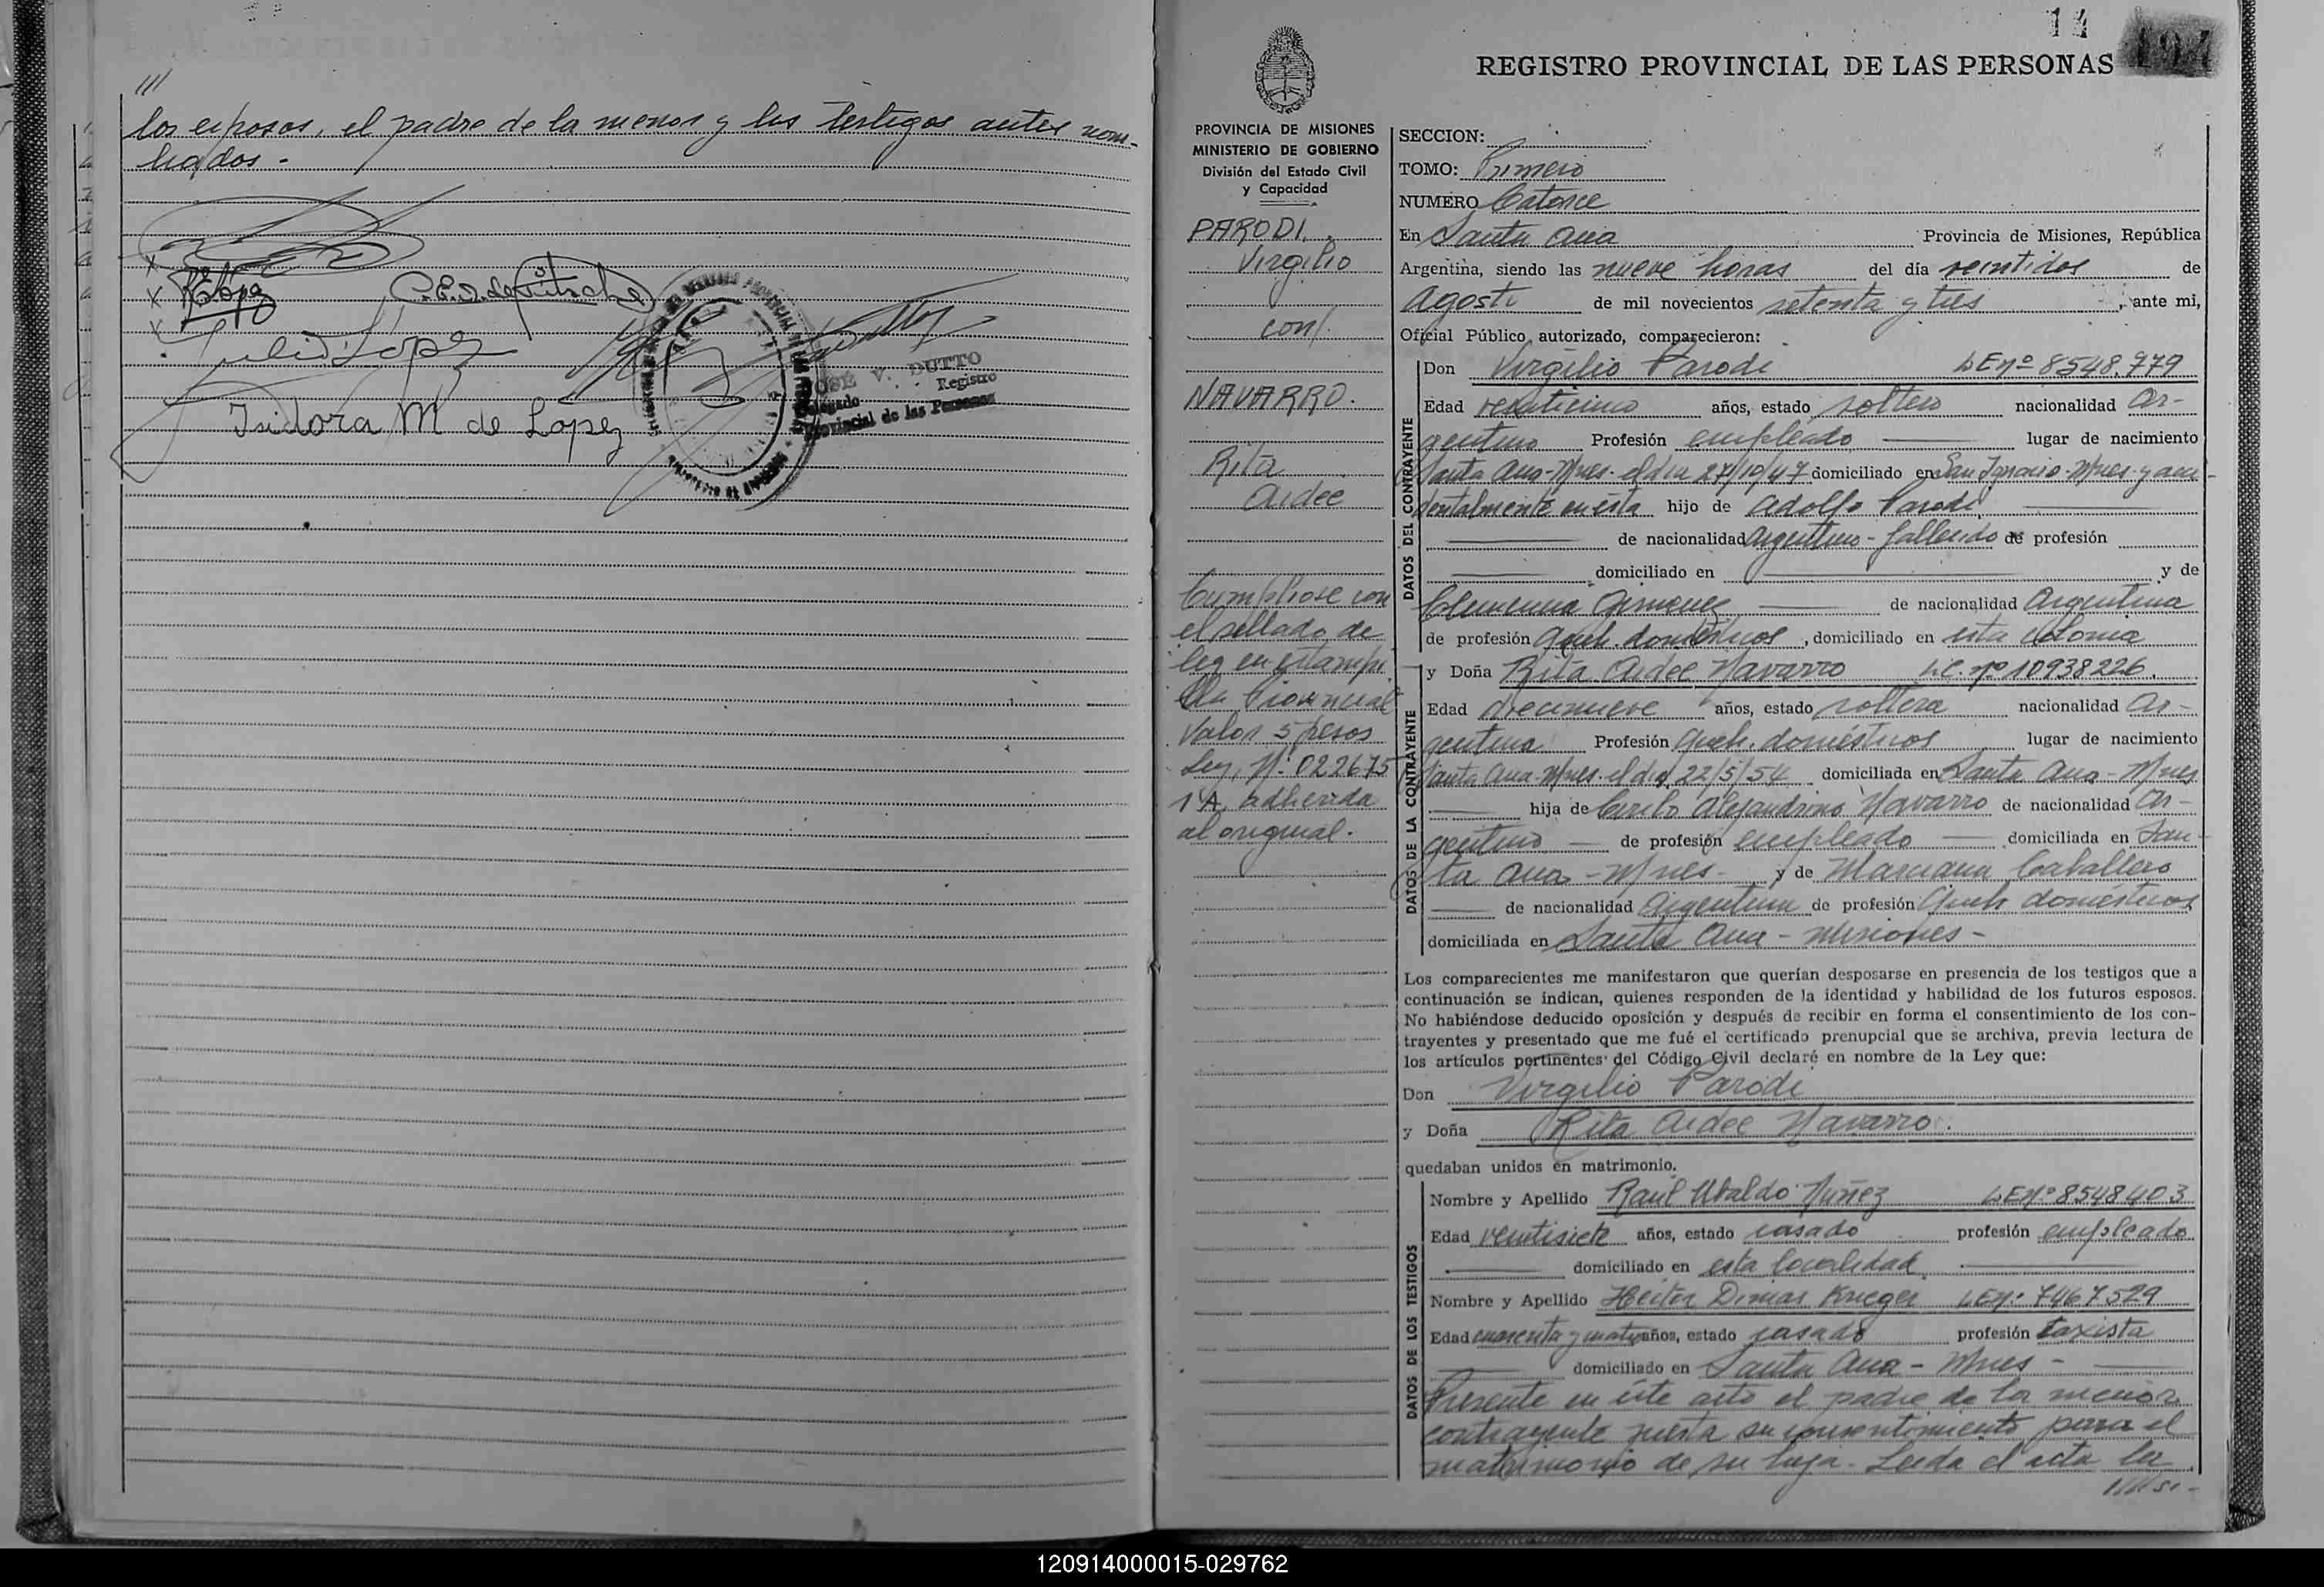 ///
los esposos, el padre de la menor y los testigos antes nom-
brados.-
x
x RLopez
C. E. D. de
x
Julio Lopez
JOSÉ V. DUTTO
Delegado Registro
Provincial de las Personas
Isidora M de Lopez
14
194
REGISTRO PROVINCIAL DE LAS PERSONAS
PROVINCIA DE MISIONES
MINISTERIO DE GOBIERNO
División del Estado Civil
y Capacidad
PARODI
Virgilio
con/.
NAVARRO.
Rita
Aidee
Cumpliose con
el sellado de
ley en estampi
lla Provincial
Valor 5 pesos
Ley, Nº 022675
1A, adherida
al original.
SECCION:
TOMO: Primero
NUMERO Catorce
En Santa Ana Provincia de Misiones, República
Argentina, siendo las nueve horas del día veintidos de
Agosto de mil novecientos setenta y tres, ante mi,
Oficial Público autorizado, comparecieron:
DATOS DEL CONTRAYENTE
Don Virgilio Parodi LE nº 8548.979
Edad veinticinco años, estado soltero nacionalidad Ar-
gentino Profesión empleado lugar de nacimiento
Santa Ana-Mnes. el dia 27/10/47 domiciliado en San Ignacio-Mnes-y acci-
dentalmente en ésta hijo de Adolfo Parodi
de nacionalidad Argentino-fallecido de profesión
domiciliado en y de
Clemencia Gimenez de nacionalidad Argentina
de profesión Queh. domésticos, domiciliado en esta colonia
DATOS DE LA CONTRAYENTE
y Doña Rita Aidee Navarro LC. nº 10938226.
Edad diecinueve años, estado soltera nacionalidad Ar-
gentina Profesión Queh. domésticos lugar de nacimiento
Santa Ana-Mnes. el dia 22/5/54 domiciliada en Santa Ana-Mnes
hija de Cirilo Alejandrino Navarro de nacionalidad Ar-
gentino de profesión empleado domiciliada en San-
ta Ana-Mnes- y de Marciana Caballero
de nacionalidad Argentina de profesión Queh domésticos
domiciliada en Santa Ana-Misiones-
Los comparecientes me manifestaron que querían desposarse en presencia de los testigos que a
continuación se indican, quienes responden de la identidad y habilidad de los futuros esposos.
No habiéndose deducido oposición y después de recibir en forma el consentimiento de los con-
trayentes y presentado que me fué el certificado prenupcial que se archiva, previa lectura de
los artículos pertinentes del Código Civil declaré en nombre de la Ley que:
Don Virgilio Parodi
y Doña Rita Aidee Navarro.
quedaban unidos en matrimonio.
DATOS DE LOS TESTIGOS
Nombre y Apellido Raúl Ubaldo Nuñez LE nº 8548403
Edad veintisiete años, estado casado profesión empleado
domiciliado en esta localidad
Nombre y Apellido Héctor Dimas Krieger LE nº 7467529
Edad cuarenta y cuatro años, estado casado profesión taxista
domiciliado en Santa Ana-Mnes-
Presente en éste acto el padre de la menor
contrayente presta su consentimiento para el
matrimonio de su hija. Leida el acta la
120914000015-029762